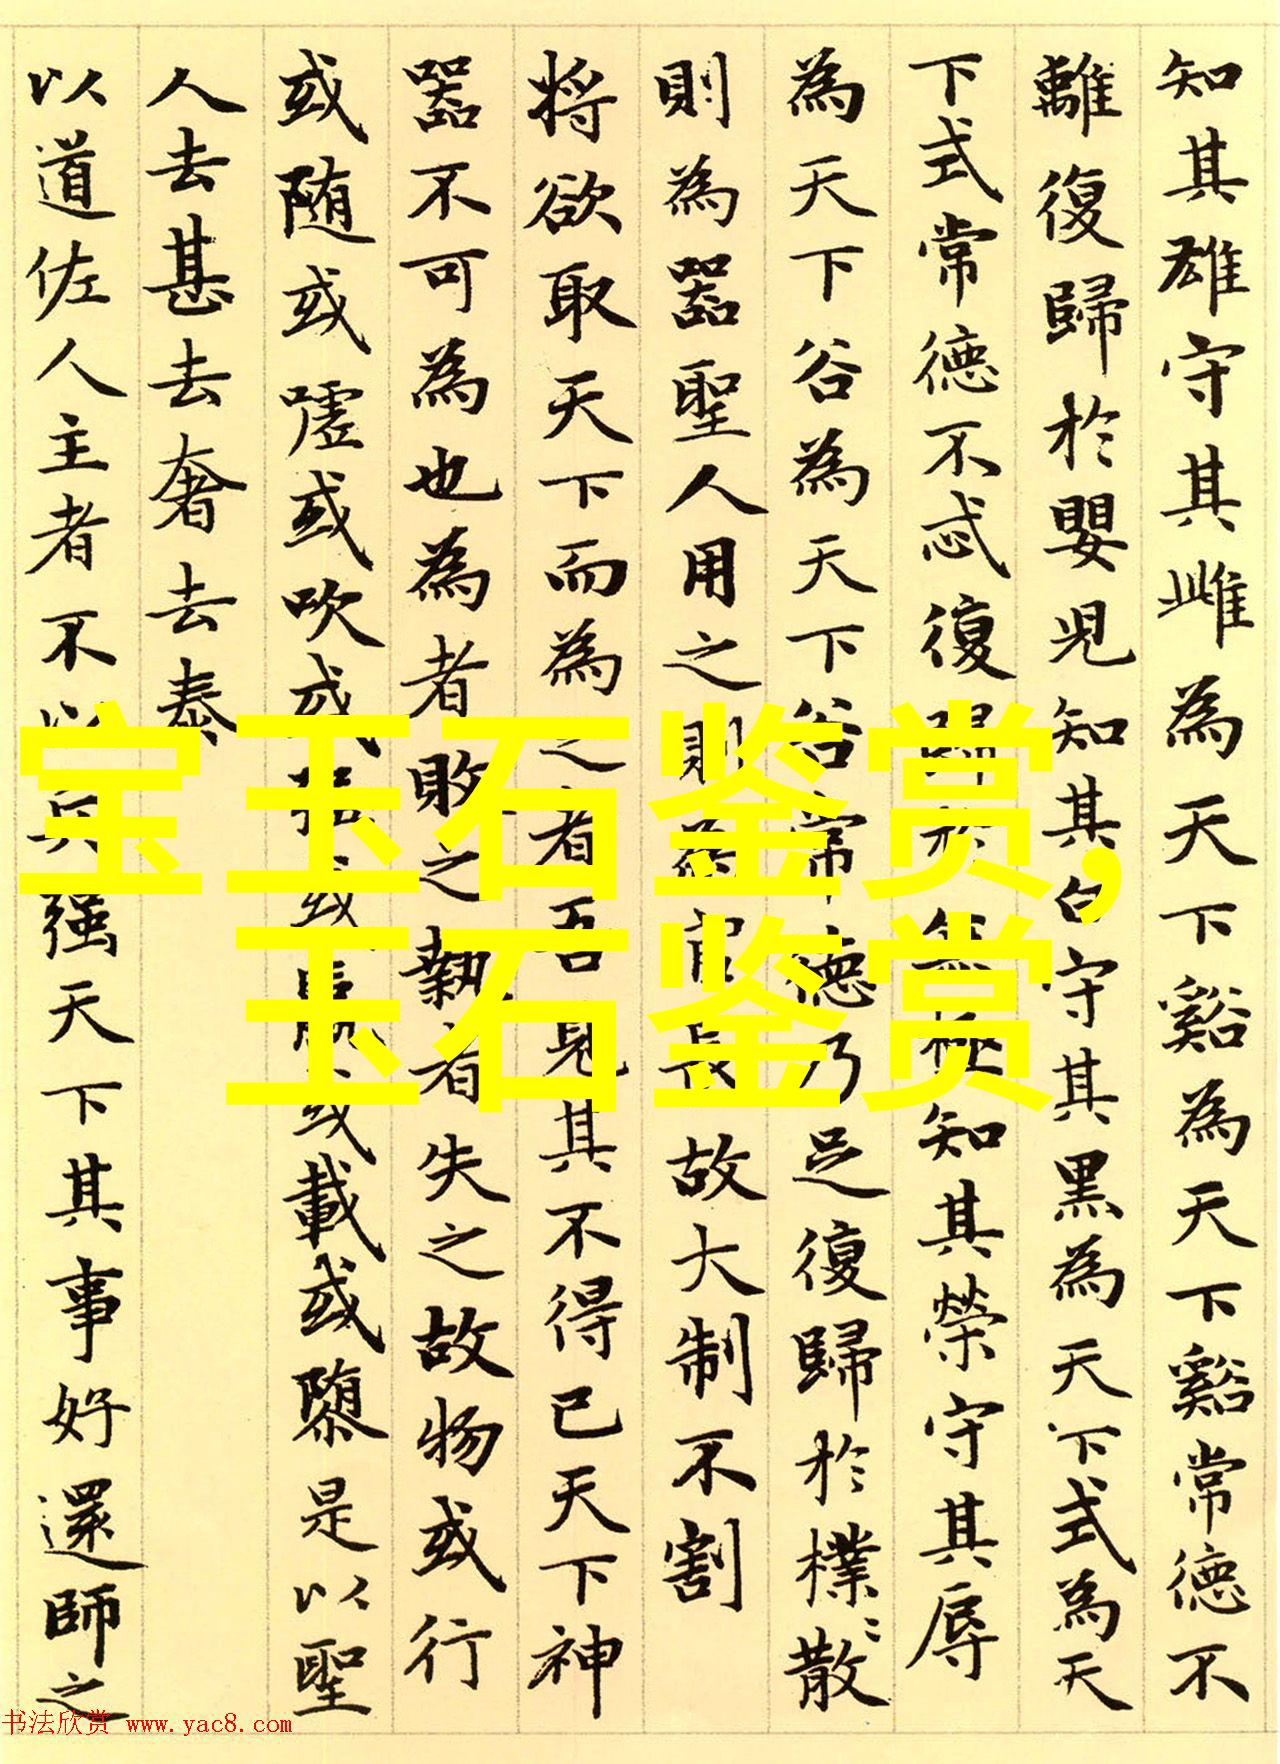 知其雄守其雌為天下谿為天下谿常德不
離復歸於嬰兒知其白守其黑為天下式為天
下式常德不忒復歸於無極知其榮守其辱
為天下谷為天下谷常德乃足復歸於樸〻散
則為器聖人用之則為官長故大制不割
將欲取天下而為之者吾見其不得已天下神
器不可為也為者敗之執者失之故物或行
或随或嘘或吹或强或羸或載或隳是以聖
人去甚去奢去泰
以道佐人主者不以兵强天下其事好還師之
宝玉石鉴赏,
玉石鉴赏
书法欣赏 www.yac8.com